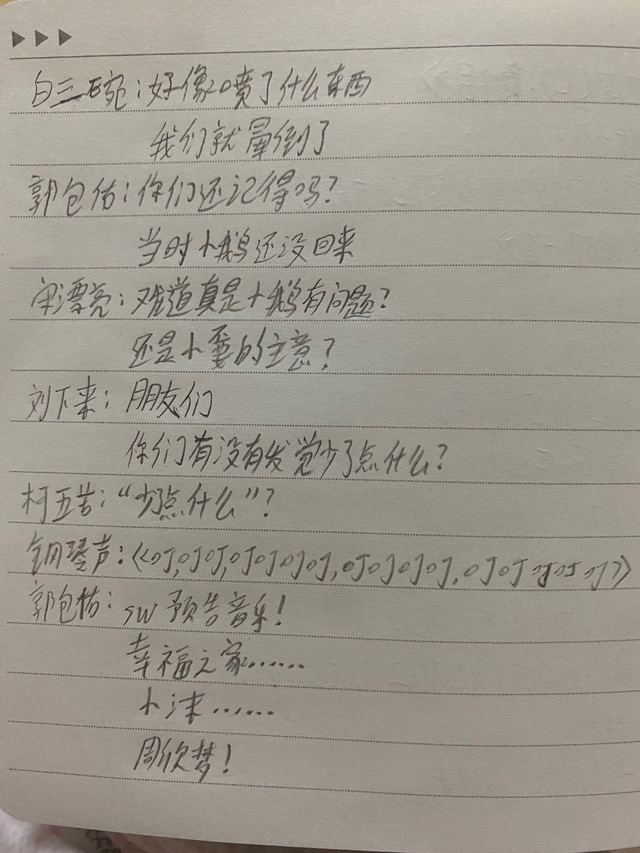 白三碗：好像喷了什么东西
我们就晕倒了
郭包佑：你们还记得吗？
当时卜鹅还没回来
宋漂亮：难道真是卜鹅有问题？
还是卜要的主意？
刘下来：朋友们
你们有没有发觉少了点什么？
柯五苦：“少点什么”？
钢琴声：《叮,叮叮,叮叮叮叮,叮叮叮叮,叮叮叮叮叮》
郭包佑：sw预告音乐！
幸福之家……
卜沫……
周欣梦！